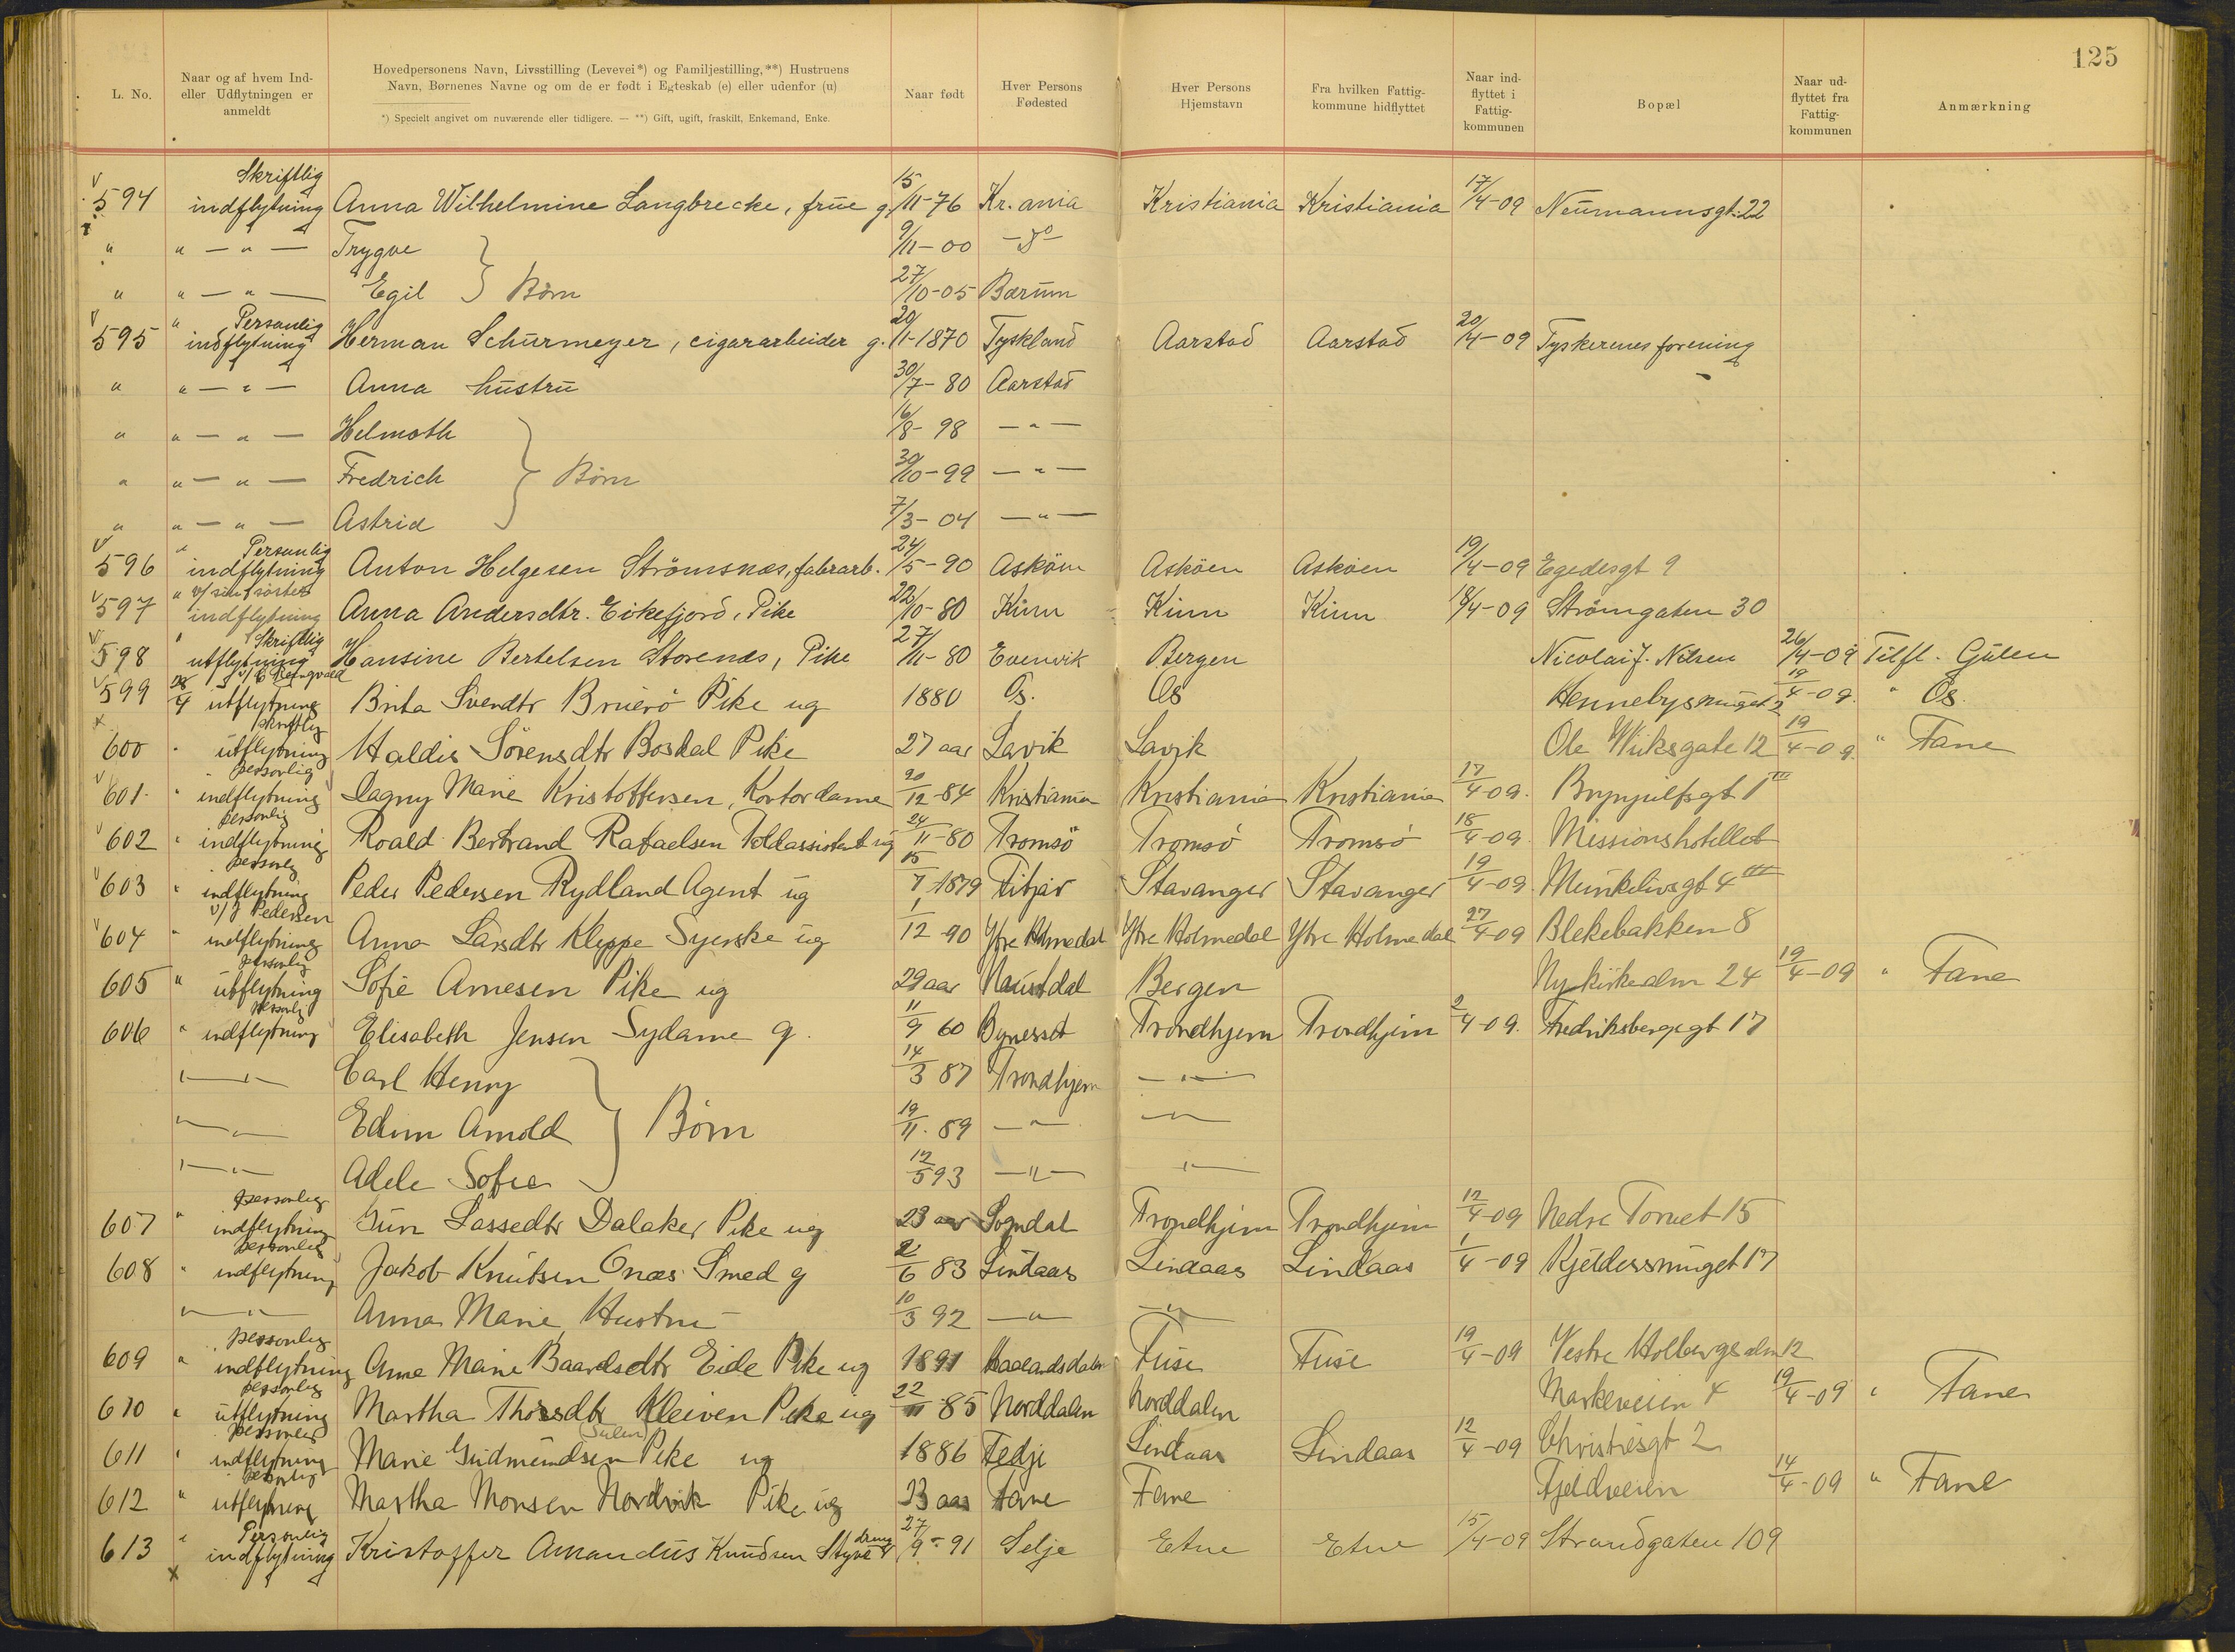 125
L. No.
Naar og af hvem Ind-
eller Udflytningen er
anmeldt
Hovedpersonens Navn, Livsstilling (Levevei*) og Familjestilling,**) Hustruens
Navn, Børnenes Navne og om de er født i Egteskab (e) eller udenfor (u)
*) Specielt angivet om nuværende eller tidligere. — **) Gift, ugift, fraskilt, Enkemand, Enke.
Naar født
Hver Persons
Fødested
Hver Persons
Hjemstavn
Fra hvilken Fattig-
kommune hidflyttet
Naar ind-
flyttet i
Fattig-
kommunen
Bopæl
Naar ud-
flyttet fra
Fattig-
kommunen
Anmærkning
Skriftlig
594 indflytning Anna Wilhelmine Langbrecke, frue g. 15/11-76 Kr.ania Kristiania Kristiania 17/4-09 Neumannsgt. 22
" " — " — Trygve 9/11-00 — do —
" " — " — Egil } Børn 27/10-05 Bærum
" Personlig
595 indflytning Herman Schurmeyer, cigararbeider g. 20/11-1870 Tyskland Aarstad Aarstad 20/4-09 Tyskerenes forening
" " — " — Anna hustru 30/7-80 Aarstad
" " — " — Helmoth 16/8-98 — " —
" " — " — Fredrich } Børn 30/10-99 — " —
" " — " — Astrid 7/3-04 — " —
" Personlig
596 indflytning Anton Helgesen Strömsnæs, fabrarb. 24/5-90 Asköen Asköen Asköen 19/4-09 Egedesgt 9
" v/ sin søster
597 indflytning Anna Andersdtr. Eikefjord, Pike 22/10-80 Kinn Kinn Kinn 18/4-09 Strömgaten 30
" Skriftlig
598 utflytning Hansine Bertelsen Storenes, Pike 27/11-80 Evenvik Bergen Nicolai J. Nilsen 26/4-09 Tilfl. Gulen
599 28/4 utflytning Brita Svendtr Bruerö Pike ug 1880 Os. Os Hennebysmuget 2 19/4-09. " Os.
skriftlig
600 " utflytning Haldis Sörensdtr Boskal Pike 27 aar Lavik Lavik Ole Wiiksgate 12 19/4-09. " Fane
personlig
601. " indflytning Dagny Marie Kristoffersen, Kontordame 20/12-84 Kristiania Kristiania Kristiania 17/4-09. Brynjulfsgt 1 III
personlig
602 " indflytning Roald Bertrand Rafaelsen Toldassistent ug 24/11-80 Tromsö Tromsö Tromsö 18/4-09. Missionshotellet
personlig
603 " indflytning Peder Pedersen Rydland Agent ug 15/7 1879 Fitjar Stavanger Stavanger 19/4-09. Munkelivsgt 4 III
v/ J Pedersen
604 " indflytning Anna Larsdtr Kleppe Syerske ug 1/12-90 Ytre Holmedal Ytre Holmedal Ytre Holmedal 27/4-09 Blekebakken 8
personlig
605 " utflytning Sofie Arnesen Pike ug 29 aar Naustdal Bergen Nykirkealm 24 19/4-09 " Fane
personlig
606 " indflytning Elisabeth Jensen Sydame g. 11/9 60 Bynesset Trondhjem Trondhjem 2/4-09. Fredriksbergsgt 17
— " — Carl Henry 14/3 87 Trondhjem — " —
— " — Edvin Arnold } Børn 19/11. 89 — " — — " —
— " — Adele Sofie 12/5 93 — " — — " —
personlig
607 " indflytning Gun Lassedtr Dalaker Pike ug 23 aar Sogndal Trondhjem Trondhjem 12/4-09 Nedre Torvet 15
personlig
608 " indflytning Jakob Knutsen Onæs Smed g 2/6 83 Lindaas Lindaas Lindaas 1/4-09 Kjeldersmuget 17
— " — Anna Marie Hustru 10/3 92 — " — — " —
personlig
609 " indflytning Anna Marie Baardsdtr Eide Pike ug 1891 Haalandsdalen Fuse Fuse 19/4-09 Vestre Holbergsalm 12
personlig
610 " utflytning Martha Thorsdtr Kleiven Pike ug 22/11 85 Norddalen Norddalen Markeveien 4 19/4-09 " Fane
personlig (Sulen)
611 " indflytning Marie Gudmundsen Pike ug 1886 Fedje Lindaas Lindaas 12/4-09 Christiesgt 2
personlig
612 " utflytning Martha Monsen Nordvik Pike ug 23 aar Fane Fane Fjeldveien 14/4-09 " Fane
" Personlig
613 indflytning Kristoffer Amandus Knudsen Styve dreng 27/9-91 Selje Etne Etne 15/4-09 Strandgaten 109